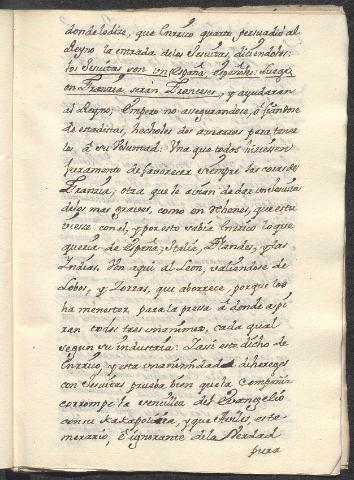 donde lo dize, que Enrico quarto persuadió al
Reyno la entrada de los Jesuitas, diciendoles:
los Jesuitas son en España Españoles: luego
en Franzia seran Franceses, y ayudaràn
al Reyno; Empero no assegurandose, ò fiandose
de estadistas, hechòles dos amarras para tener
los à su voluntad: Una que todos hiziessen
juramento de favorecer siempre las cosas de
Franzia; otra que le avian de dar un Jesuita
de los mas graves, como en rehenes, que estu
viesse con el, y por esto sabia Enrico lo que
queria de España; Italia, Flandes, y las
Indias. Ven aqui al Leon, valiendose de
Lobos, y Zorras, que aborrece, porque los
ha menester, para la pressa à donde aspi
ran todos tres unanimes, cada qual
segun su industria: Jassi este dicho de
Enrico, y esta unanimidad de hereges
con Jesuitas prueba bien que la Compañia
corrompe la sencillez del Evangelio
con su y que Aviles, es te
merario, è ignorante de la Verdad
pura